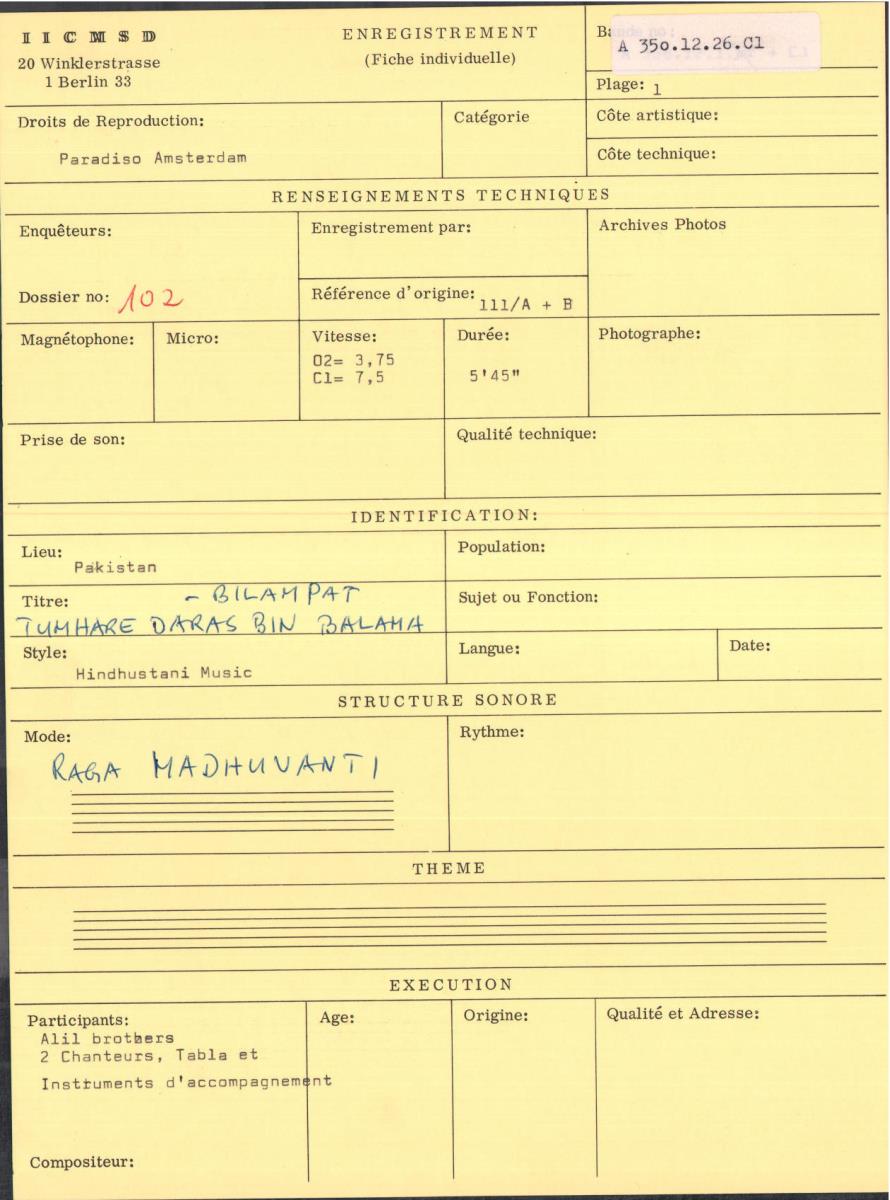 I I C M S D
20 Winklerstrasse
1 Berlin 33
ENREGISTREMENT
(Fiche individuelle)
A 35o.12.26.Cl
Plage: 1
Droits de Reproduction:
Paradiso Amsterdam
Catégorie
Côte artistique:
Côte technique:
RENSEIGNEMENTS TECHNIQUES
Enquêteurs:
Dossier no: 102
Enregistrement par:
Référence d'origine: 111/A + B
Archives Photos
Magnétophone:
Micro:
Vitesse:
O2= 3,75
Cl= 7,5
Durée:
5'45"
Photographe:
Prise de son:
Qualité technique:
IDENTIFICATION:
Lieu:
Pakistan
Population:
Titre: - BILAMPAT
TUMHARE DARAS BIN BALAMA
Sujet ou Fonction:
Style:
Hindhustani Music
Langue:
Date:
STRUCTURE SONORE
Mode:
RAGA MADHUVANTI
Rythme:
THEME
EXECUTION
Participants:
Alil brothers
2 Chanteurs, Tabla et
Instruments d'accompagnement
Age:
Origine:
Qualité et Adresse:
Compositeur: